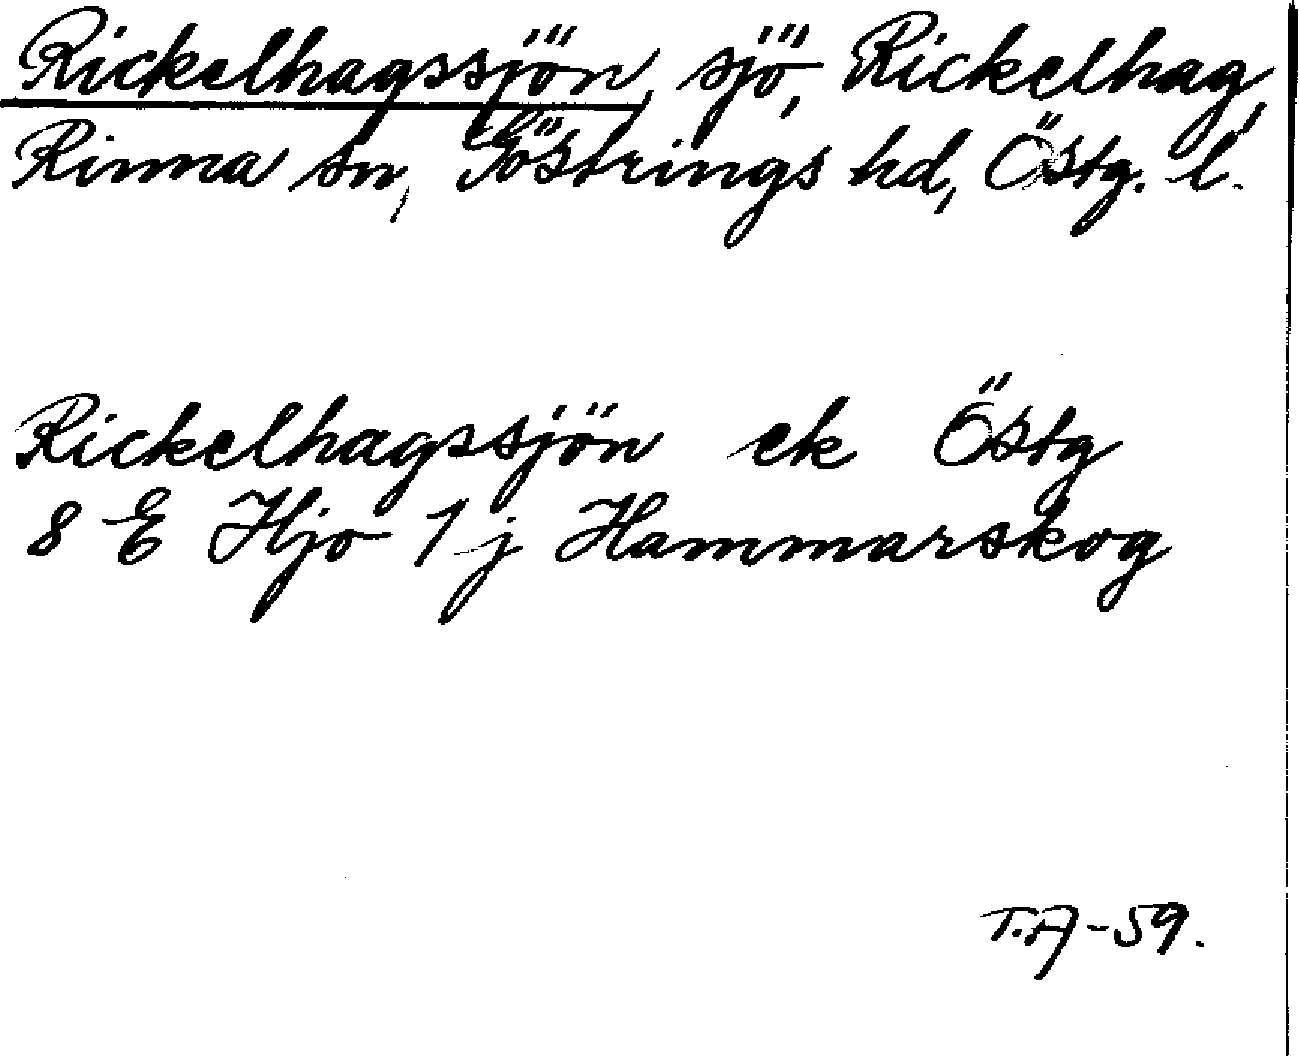 Rickelhagssjön, sjö, Rickelhag,
Rinna sn, Göstrings hd, Östg. l.
Rickelhagssjön ek Östg
8 E Hjo 1 j Hammarskog
T.A-59.